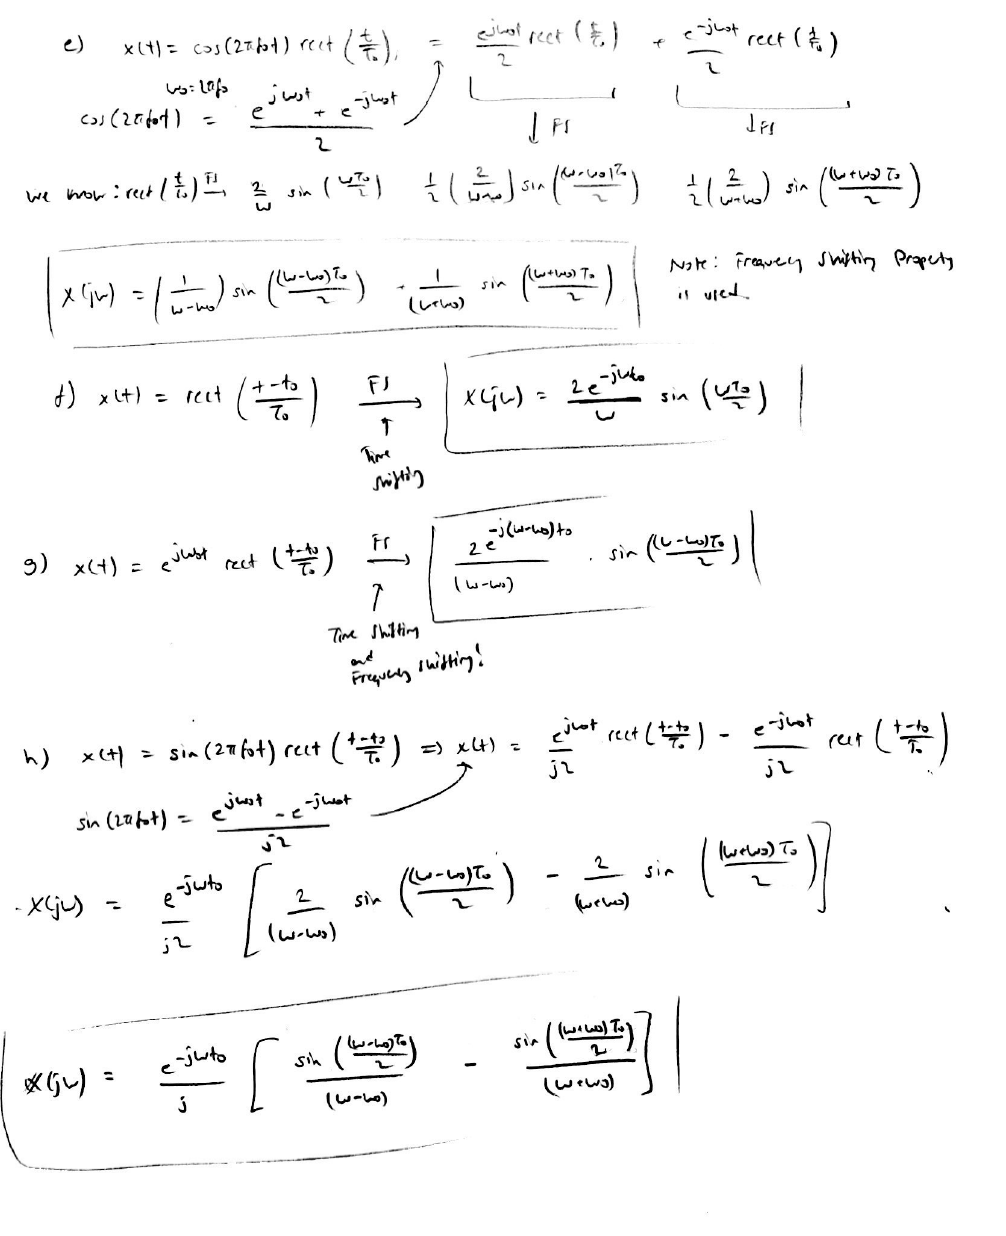 e) x(t) = cos(2πf₀t) rect(t/T₀), = e^{jω₀t}/2 rect(t/T₀) + e^{-jω₀t}/2 rect(t/T₀)
ω₀=2πf₀
cos(2πf₀t) = (e^{jω₀t} + e^{-jω₀t})/2 ↓ FT ↓ FT
we know: rect(t/T₀) FT→ 2/ω sin(ωT₀/2) 1/2(2/(ω-ω₀)) sin((ω-ω₀)T₀/2) 1/2(2/(ω+ω₀)) sin((ω+ω₀)T₀/2)
X(jω) = (1/(ω-ω₀)) sin((ω-ω₀)T₀/2) + 1/(ω+ω₀) sin((ω+ω₀)T₀/2)
Note: Frequency Shifting Property
is used
f) x(t) = rect((t-t₀)/T₀) FT→ X(jω) = 2e^{-jωt₀}/ω sin(ωT₀/2)
↑
Time
shifting
g) x(t) = e^{jω₀t} rect((t-t₀)/T₀) FT→ 2e^{-j(ω-ω₀)t₀}/(ω-ω₀) · sin((ω-ω₀)T₀/2)
↑
Time Shifting
and
Frequency shifting!
h) x(t) = sin(2πf₀t) rect((t-t₀)/T₀) => x(t) = e^{jω₀t}/j2 rect((t-t₀)/T₀) - e^{-jω₀t}/j2 rect((t-t₀)/T₀)
sin(2πf₀t) = (e^{jω₀t} - e^{-jω₀t})/j2
X(jω) = e^{-jωt₀}/j2 [2/(ω-ω₀) sin((ω-ω₀)T₀/2) - 2/(ω+ω₀) sin((ω+ω₀)T₀/2)]
X(jω) = e^{-jωt₀}/j [sin((ω-ω₀)T₀/2)/(ω-ω₀) - sin((ω+ω₀)T₀/2)/(ω+ω₀)]